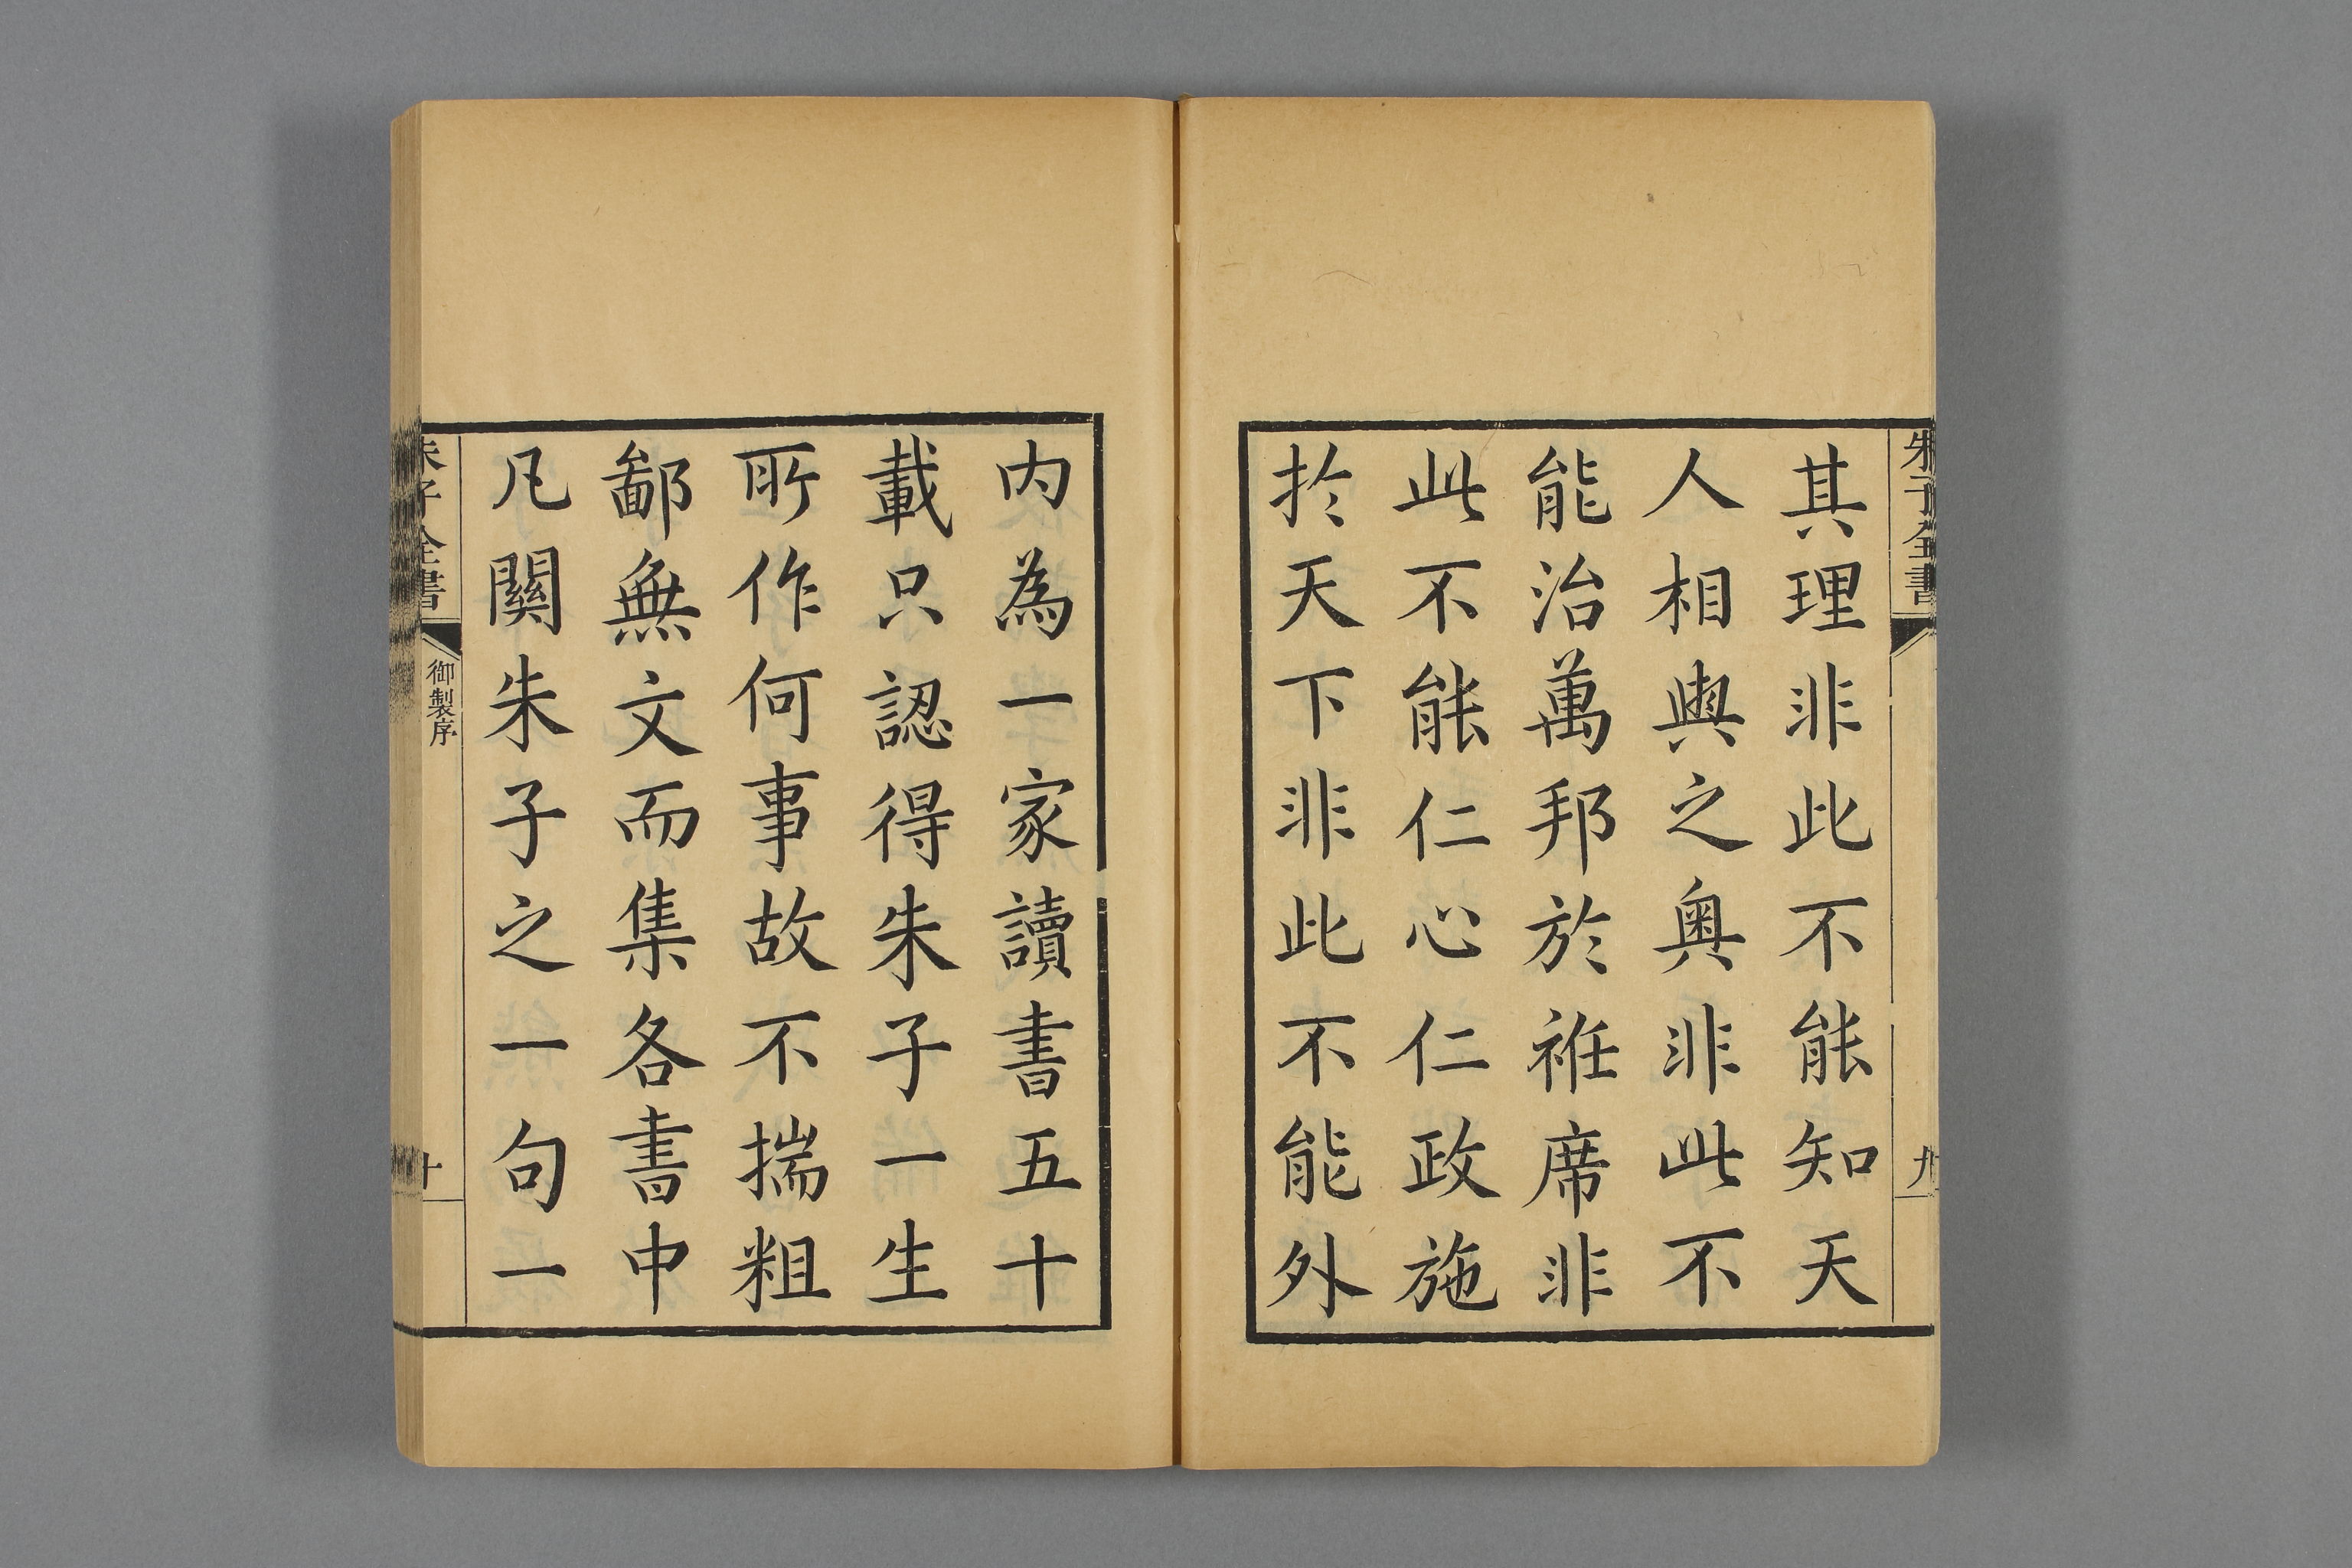 朱子全書
九
其理非此不能知天
人相與之奧非此不
能治萬邦於袵席非
此不能仁心仁政施
扵天下非此不能外
内為一家讀書五十
載只認得朱子一生
所作何事故不揣粗
鄙無文而集各書中
凡關朱子之一句一
朱子全書
御製序
十